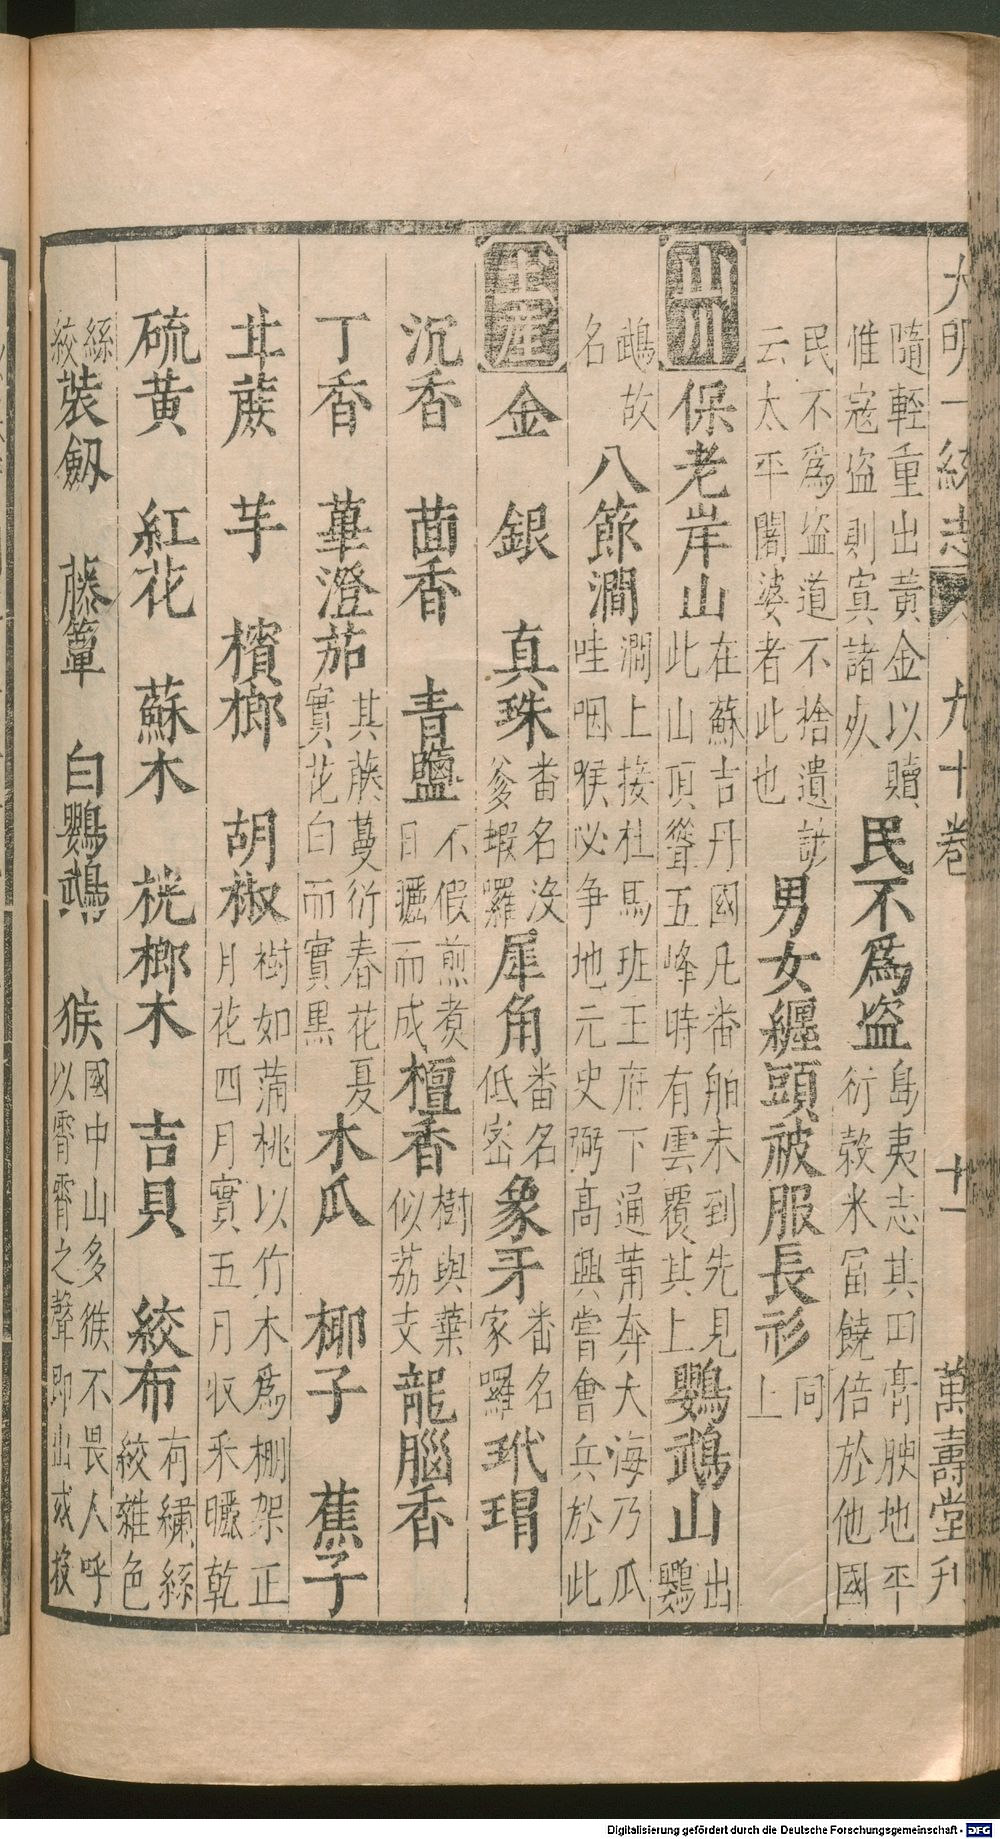 大明一統志 九十卷 十一 萬壽堂刋
隨輕重出黃金以贖
惟寇盜則寘諸死
民不爲盜
島夷志其田膏腴地平
衍穀米富饒倍於他國
民不爲盜道不捨遺諺
云太平闍婆者此也
男女纏頭被服長衫
同
上
山川
保老岸山
在蘇吉丹國凡番舶未到先見
此山頂聳五峰時有雲覆其上
鸚鵡山
出
鸚
鵡故
名
八節澗
澗上接杜馬班王府下通莆奔大海乃瓜
哇咽喉必爭地元史弼髙興嘗會兵於此
土產
金 銀 真珠
番名沒
爹蝦囉
犀角
番名
低密
象牙
番名
家囉
玳瑁
沉香 茴香 青鹽
不假煎煑
日曬而成
檀香
樹與葉
似荔支
龍腦香
丁香 蓽澄茄
其蔟蔓衍春花夏
實花白而實黑
木瓜 椰子 蕉子
芋 檳榔 胡椒
樹如蒲桃以竹木爲棚架正
月花四月實五月收采曬乾
硫黄 紅花 蘇木 桄榔木 吉貝 絞布
有繡絲
絞雜色
絲
絞
裝劔 藤簟 白鸚鵡 猴
國中山多猴不畏人呼
以霄霄之聲即出或投
Digitalisierung gefördert durch die Deutsche Forschungsgemeinschaft - DFG